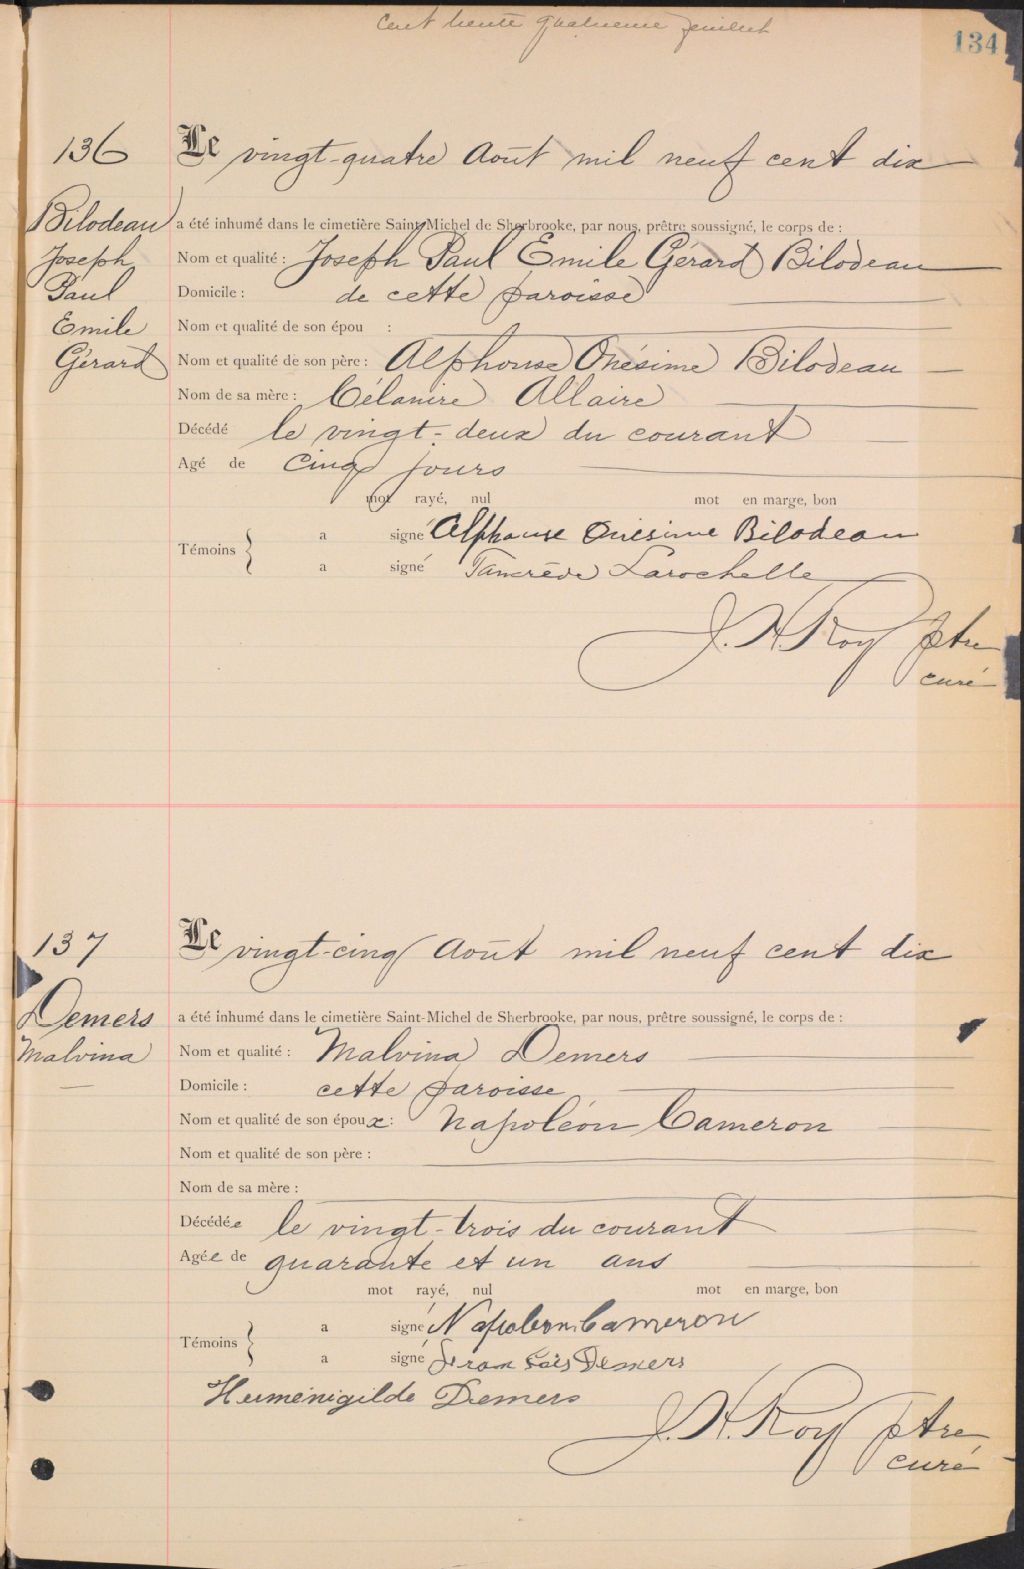 Cent trente quatrieme feuillet
134
136
Le vingt-quatre Août mil neuf cent dix
Bilodeau
Joseph
Paul
Emile
Gérard
a été inhumé dans le cimetière Saint-Michel de Sherbrooke, par nous, prêtre soussigné, le corps de :
Nom et qualité : Joseph Paul Emile Gérard Bilodeau
Domicile : de cette paroisse
Nom et qualité de son épou :
Nom et qualité de son père : Alphonse Onésime Bilodeau
Nom de sa mère : Célanire Allaire
Décédé le vingt-deux du courant
Agé de cinq jours
mot rayé, nul mot en marge, bon
Témoins a signé Alphonse Onésime Bilodeau
a signé Tancrède Larochelle
J. H. Roy ptre
curé
137
Le vingt-cinq Août mil neuf cent dix
Demers
Malvina
a été inhumé dans le cimetière Saint-Michel de Sherbrooke, par nous, prêtre soussigné, le corps de :
Nom et qualité : Malvina Demers
Domicile : cette paroisse
Nom et qualité de son époux : Napoléon Cameron
Nom et qualité de son père :
Nom de sa mère :
Décédée le vingt-trois du courant
Agée de quarante et un ans
mot rayé, nul mot en marge, bon
Témoins a signé Napoleon Cameron
a signé Francois Demers
Hermenigilde Demers
J. H. Roy ptre
curé